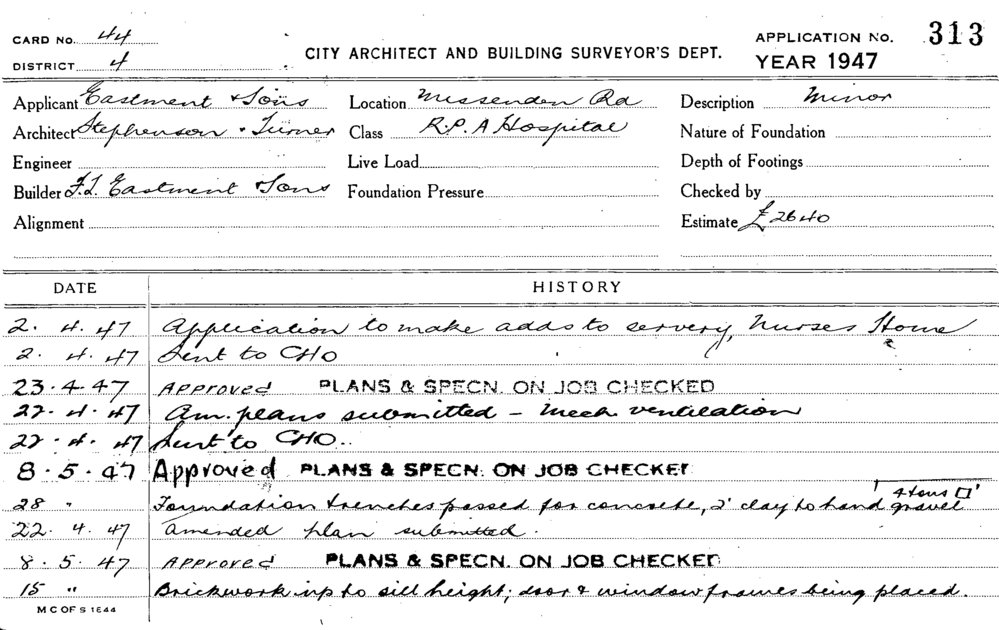 CARD No. 44
DISTRICT 4
CITY ARCHITECT AND BUILDING SURVEYOR'S DEPT.
APPLICATION No. 313
YEAR 1947
Applicant Eastment & Sons Location Missenden Rd Description Minor
Architect Stephenson & Turner Class R.P.A Hospital Nature of Foundation
Engineer Live Load Depth of Footings
Builder F.L. Eastment & Sons Foundation Pressure Checked by
Alignment Estimate £2640
DATE HISTORY
2. 4. 47 Application to make adds to servery, Nurses Home
2. 4. 47 Sent to CHO
23.4.47 Approved PLANS & SPECN. ON JOB CHECKED
22.4.47 Am. plans submitted - Mech ventilation
22.4.47 Sent to CHO..
8.5.47 Approved PLANS & SPECN. ON JOB CHECKED
4 tons □'
28 " Foundation trenches passed for concrete, 2' clay to hard gravel
22. 4. 47 Amended plan submitted.
8.5.47 Approved PLANS & SPECN. ON JOB CHECKED
15 " Brickwork up to sill height; door & window frames being placed.
M C OF S 1644